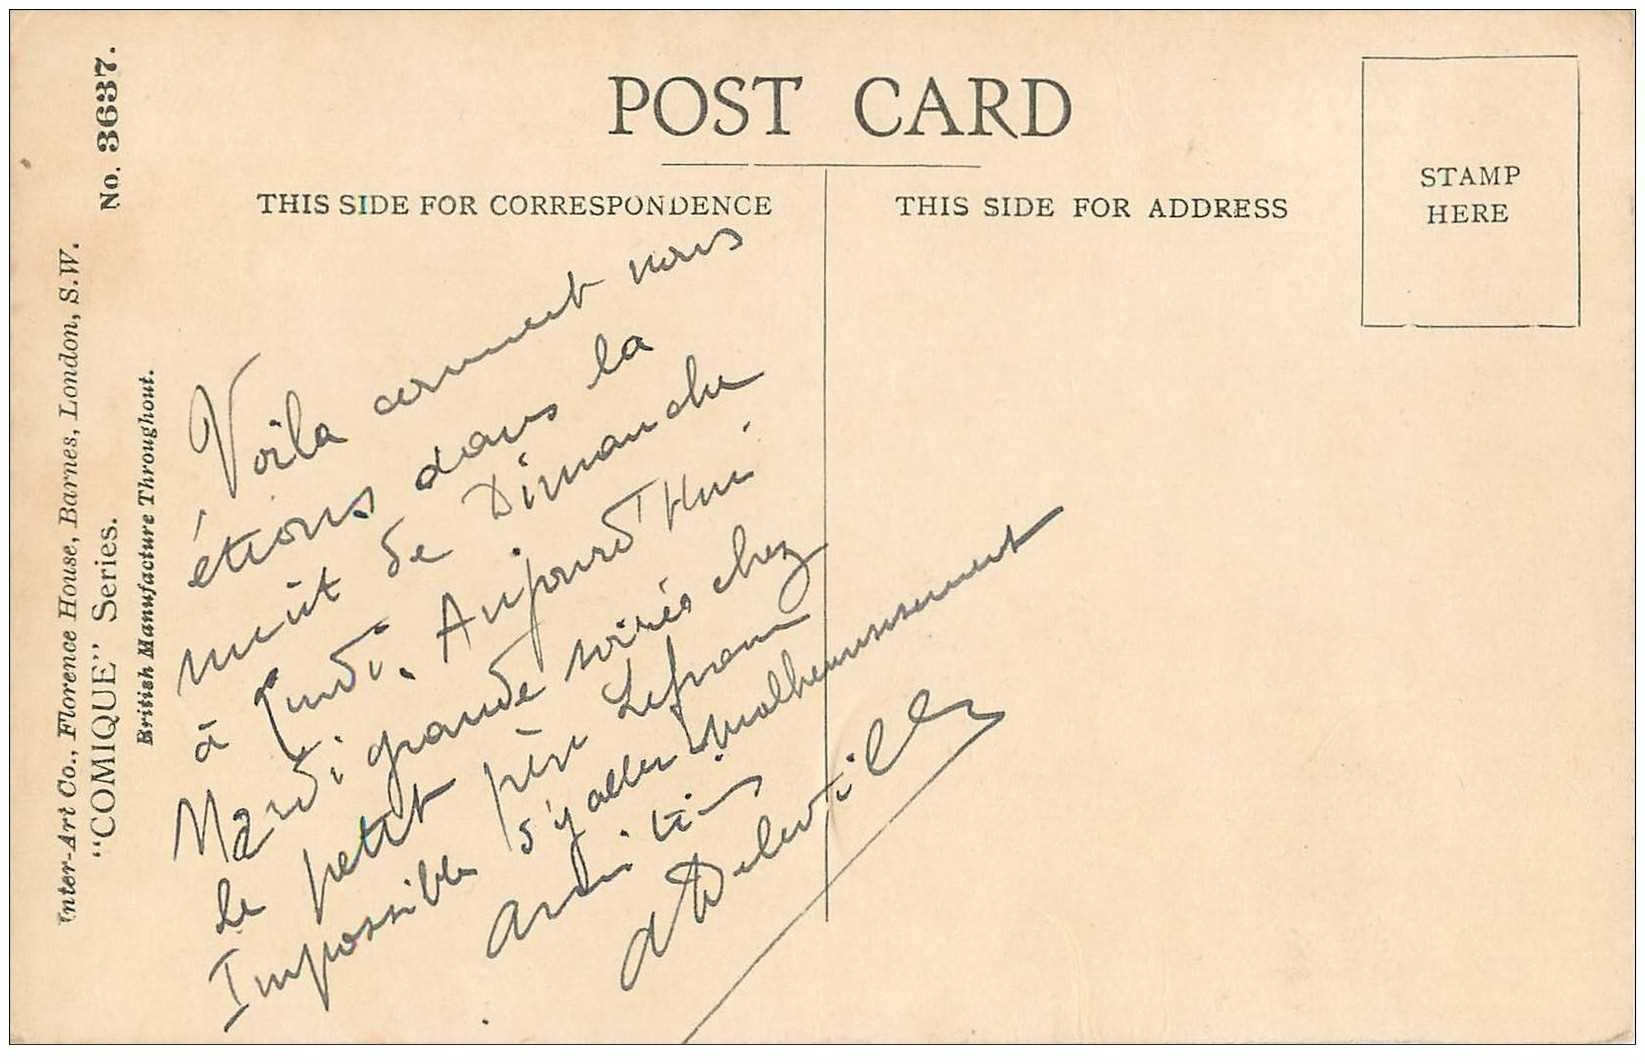 POST CARD
THIS SIDE FOR CORRESPONDENCE
THIS SIDE FOR ADDRESS
STAMP
HERE
No. 3637.
Inter-Art Co., Florence House, Barnes, London, S.W.
"COMIQUE" Series.
British Manufacture Throughout.
Voila comment nous
étions dans la
nuit de Dimanche
à Lundi. Aujourd'Hui
Mardi grande soirée chez
le petit père
Impossible s'y aller malheureusement
Amitiés